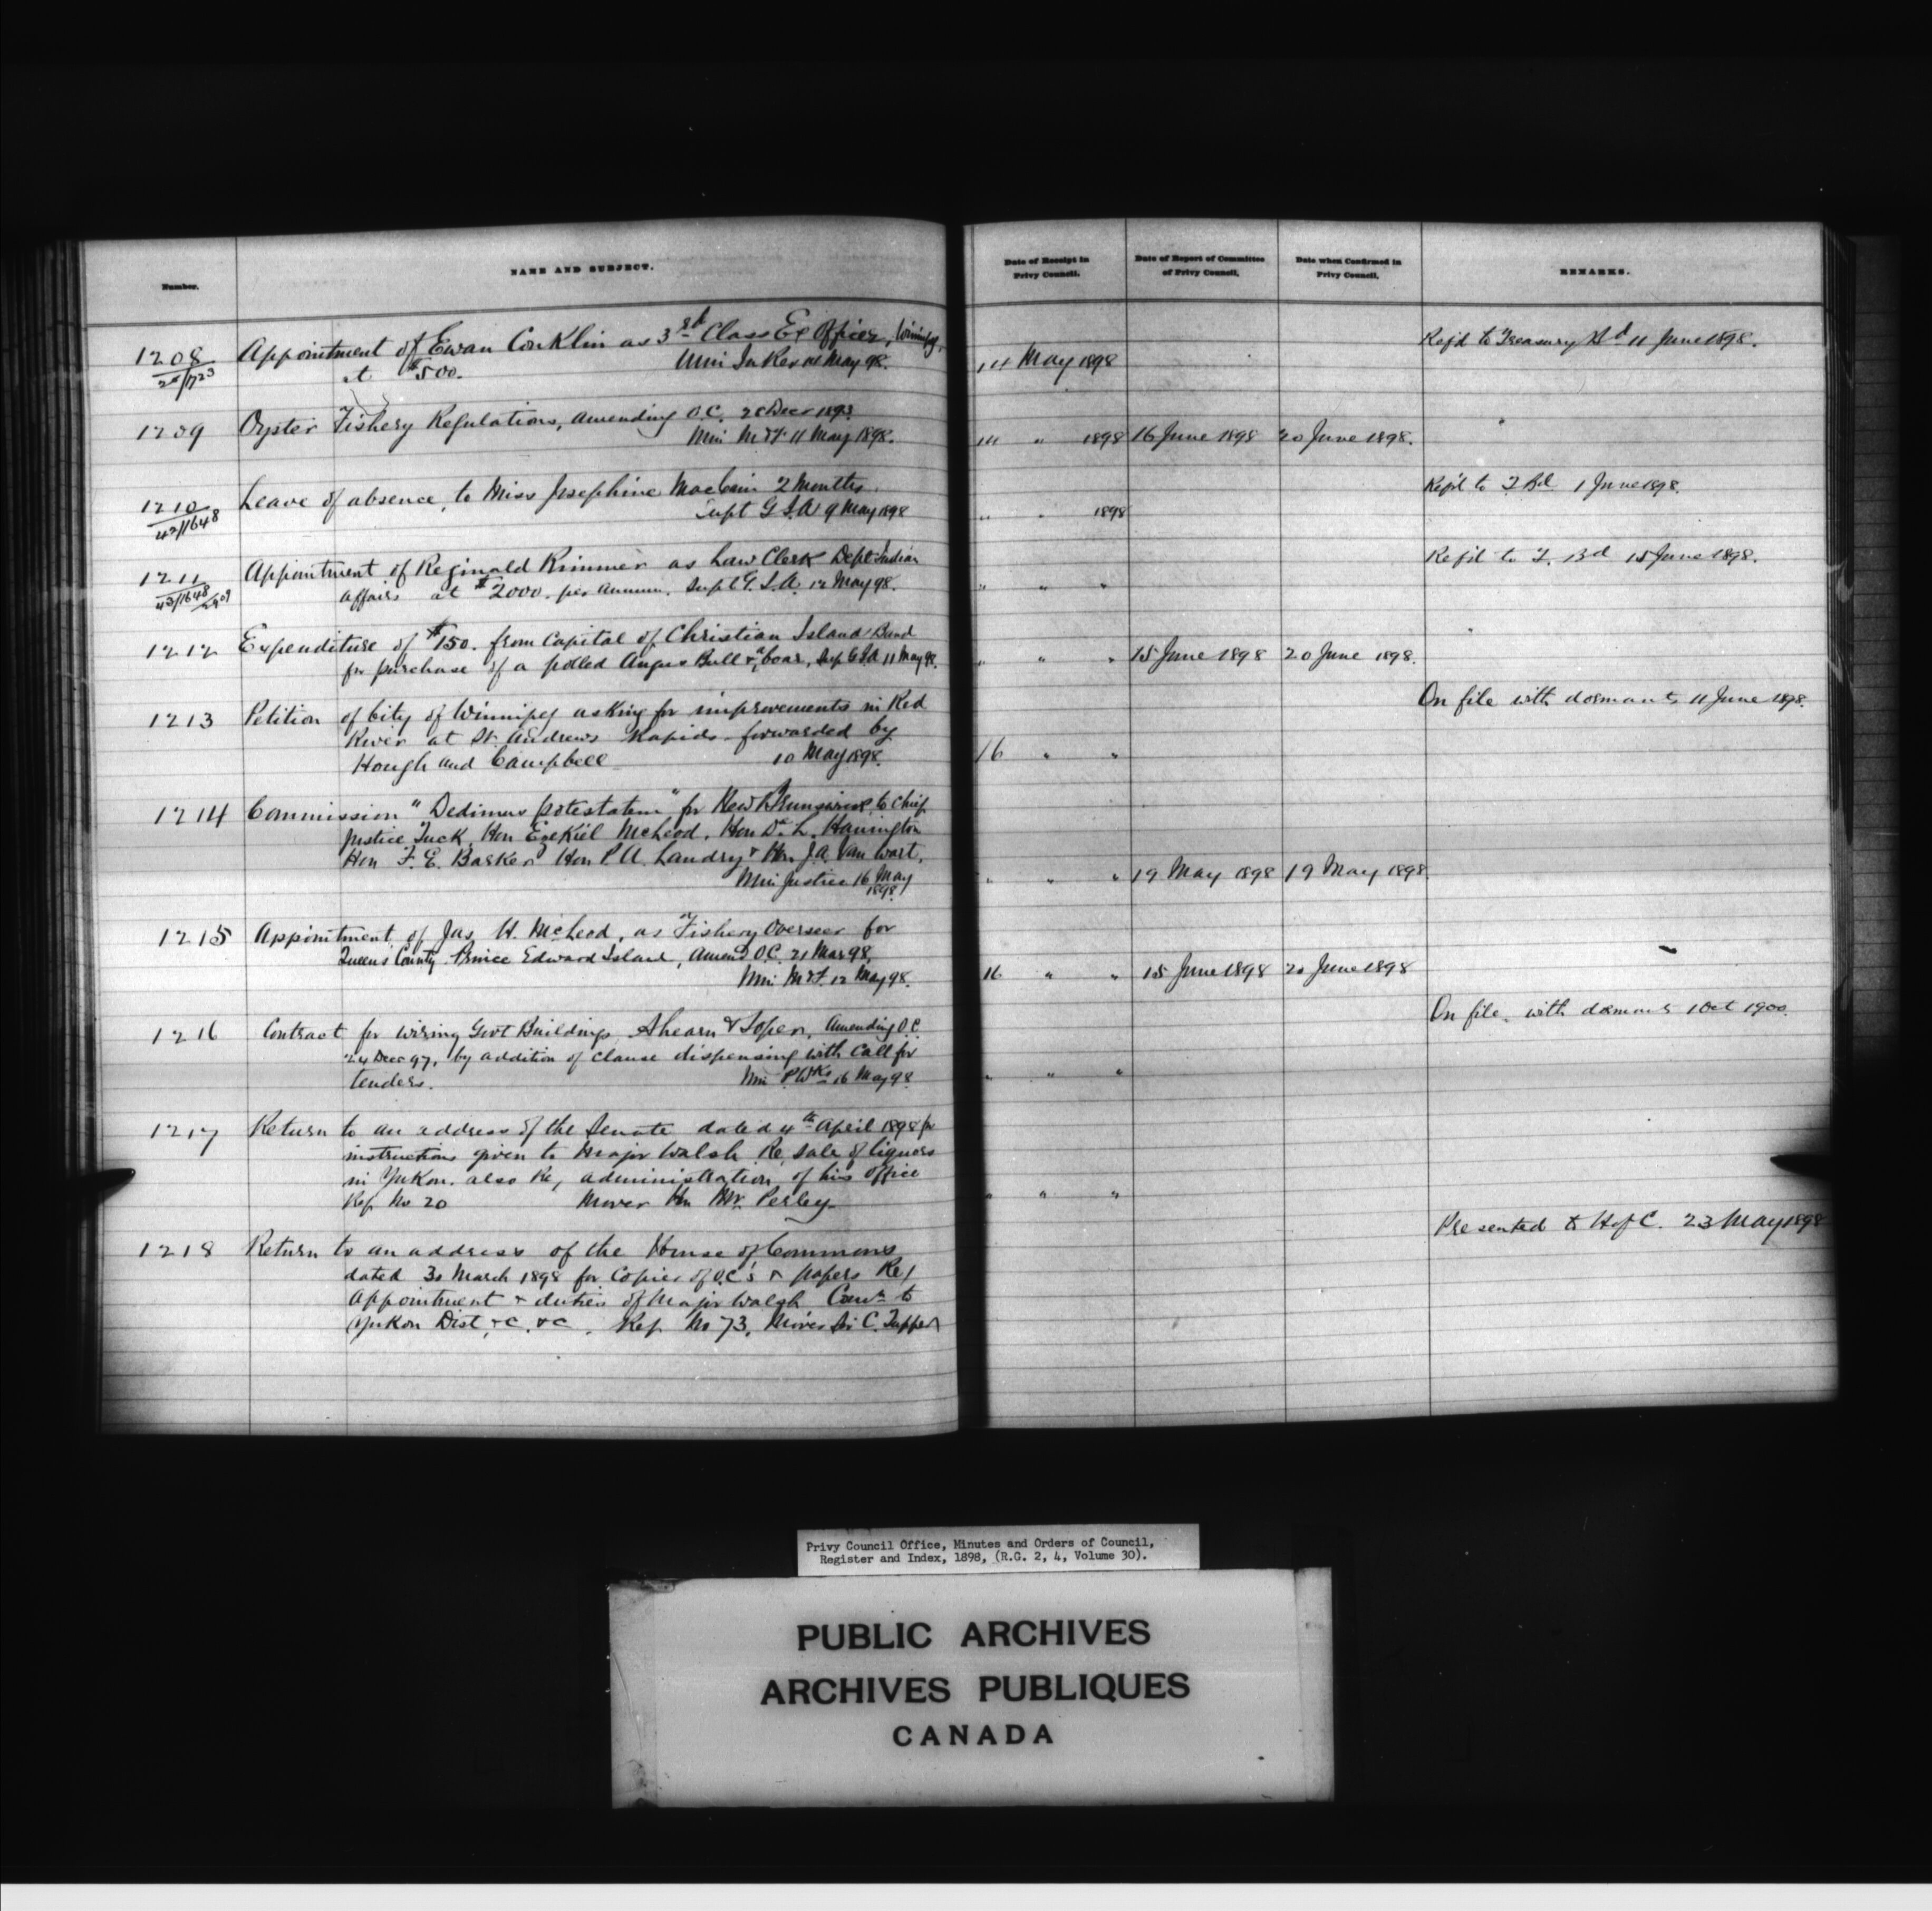 Number.
NAME AND SUBJECT.
Date of Receipt in Privy Council.
Date of Report of Committee of Privy Council.
Date when Confirmed in Privy Council.
REMARKS.
1208 Appointment of Ewan Conklin as 3rd Class Ex Officer, Winnipeg,
at $500. Min In Rev May 98. 14 May 1898
Ref'd to Treasury Bd 11 June 1898.
1209 Oyster Fishery Regulations, amending O.C. Decr 1893
Min M&F 11 May 1898. 14 " 1898 16 June 1898 20 June 1898.
1210 Leave of absence, to Miss Josephine 2 Months.
42/1648 Supt G I.A 9 May 1898 " " 1898
Ref'd to T Bd 1 June 1898.
1211 Appointment of Reginald Rimmer as Law Clerk Dept Indian
affairs at $2000. per annum. Supt G. I.A. 12 May 98. " " "
Ref'd to T. Bd 15 June 1898.
1212 Expenditure of $150. from Capital of Christian Island Band
for purchase of a polled Angus Bull & a boar, Sup G I A 11 May 98. " " " 15 June 1898 20 June 1898.
1213 Petition of City of Winnipeg asking for improvements in Red
River at St. Andrews Rapids forwarded by
Hough and Campbell 10 May 1898. 16 " "
On file with dormants 11 June 1898.
1214 Commission "Dedimus potestatem" for New Brunswick, to Chief
Justice Tuck, Hon Ezekiel McLeod, Hon D. L. Hanington
Hon F. E. Barker Hon P A. Landry & Hon J.A. Van Wart,
Min Justice 16 May
1898 " " " 19 May 1898 19 May 1898.
1215 Appointment of Jas H. McLeod, as Fishery Overseer for
Queens County Prince Edward Island, Amend O.C. 21 Mar 98,
Min M&F. 12 May 98. 16 " " 15 June 1898 20 June 1898
1216 Contract for wiring Govt Buildings Ahearn & Soper, Amending O.C.
24 Decr 97, by addition of clause dispensing with call for
tenders. Min P Wks 16 May 98. " " "
On file with dormants 1 Oct 1900.
1217 Return to an address of the Senate dated 4th April 1898 for
instructions given to Major Walsh Re, sale of liquors
in Yukon. also Re, administration of his office
Ref No 20 Mover Hon Mr. Perley " " "
1218 Return to an address of the House of Commons
dated 30 March 1898 for Copies of O.C's & papers Re/
Appointment & duties of Major Walsh Comr to
Yukon Dist, &c. &c. Ref No 73, Mover Sir C. Tupper
Presented to H of C. 23 May 1898
Privy Council Office, Minutes and Orders of Council,
Register and Index, 1898, (R.G. 2, 4, Volume 30).
PUBLIC ARCHIVES
ARCHIVES PUBLIQUES
CANADA